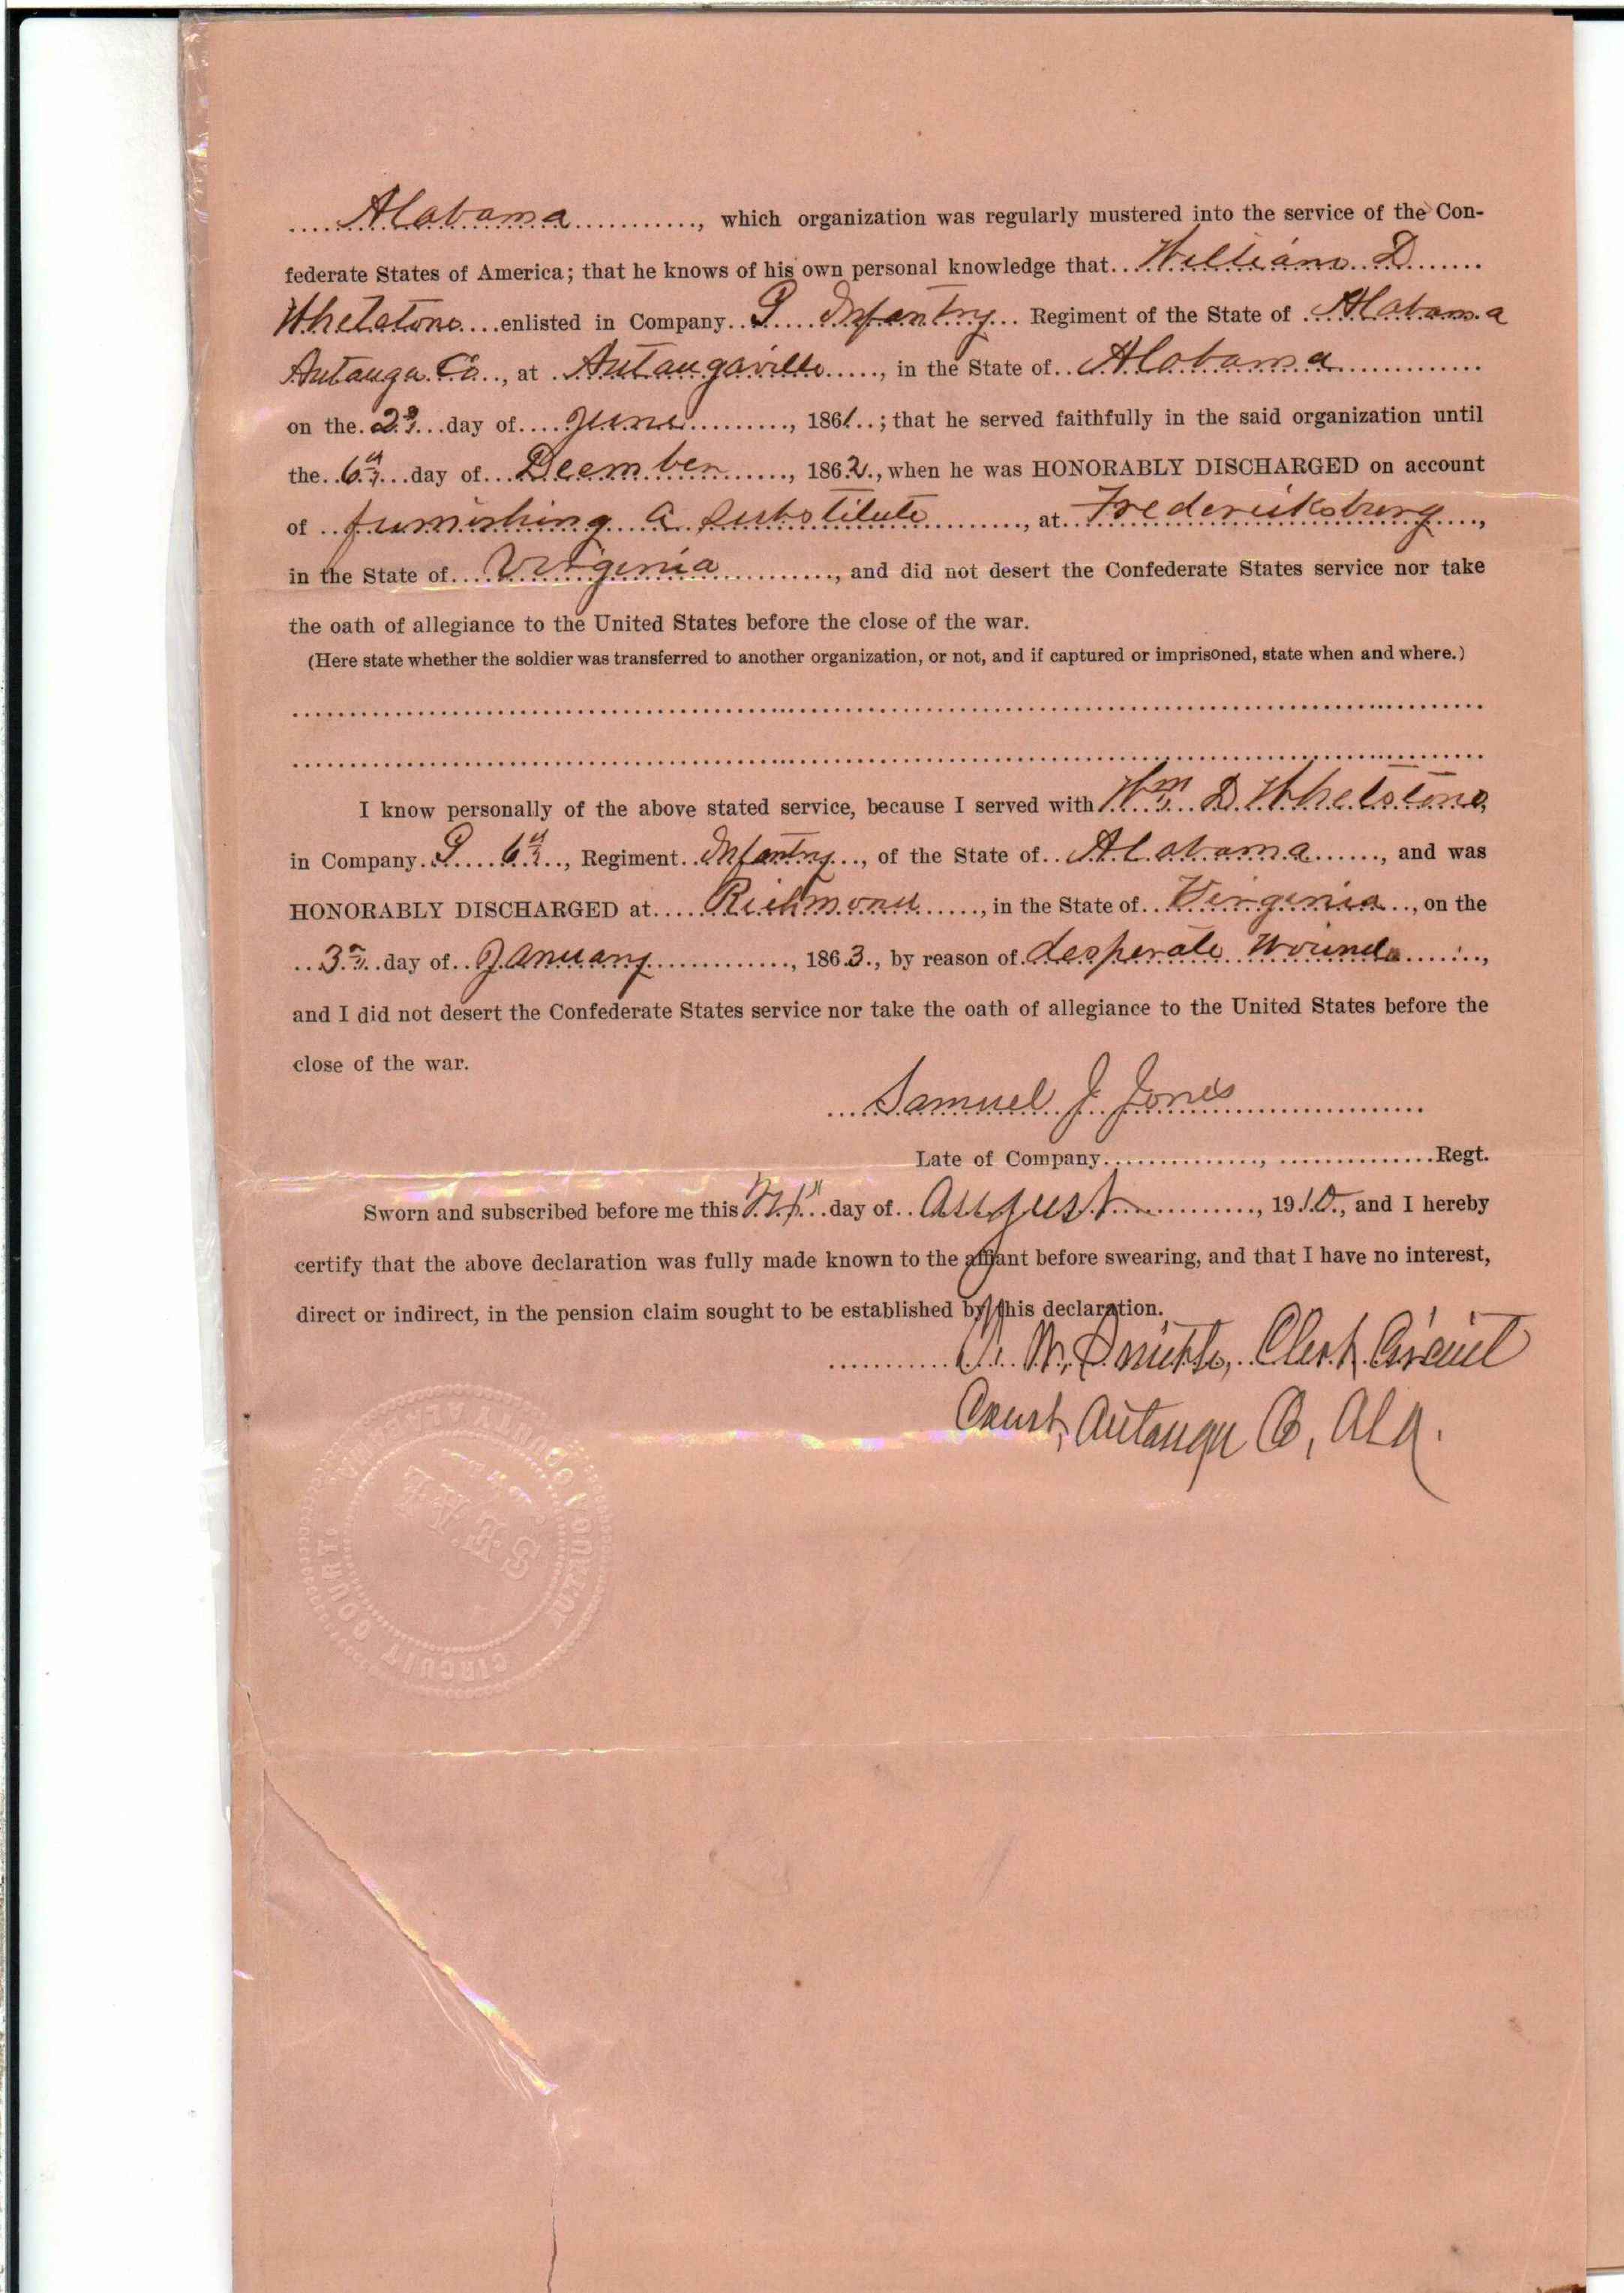 Alabama, which organization was regularly mustered into the service of the Con-
federate States of America; that he knows of his own personal knowledge that William D
Whetstone enlisted in Company Infantry Regiment of the State of Alabama
Autauga Co., at Autaugaville, in the State of Alabama
on the day of June, 1861; that he served faithfully in the said organization until
the 6th day of Deember, 1862, when he was HONORABLY DISCHARGED on account
of furnishing a substitute, at Fredericksburg,
in the State of Virginia, and did not desert the Confederate States service nor take
the oath of allegiance to the United States before the close of the war.
(Here state whether the soldier was transferred to another organization, or not, and if captured or imprisoned, state when and where.)
I know personally of the above stated service, because I served with Wm D. Whetstone,
in Company 6th, Regiment Infantry, of the State of Alabama, and was
HONORABLY DISCHARGED at Richmond, in the State of Virginia, on the
3rd day of January, 1863, by reason of desperate wounds,
and I did not desert the Confederate States service nor take the oath of allegiance to the United States before the
close of the war.
Samuel J. Jones
Late of Company, Regt.
Sworn and subscribed before me this day of August, 1910, and I hereby
certify that the above declaration was fully made known to the affiant before swearing, and that I have no interest,
direct or indirect, in the pension claim sought to be established by this declaration.
Clerk Circuit
Court, Autauga Co, Ala.
CIRCUIT COURT AUTAUGA COUNTY ALABAMA
SEAL